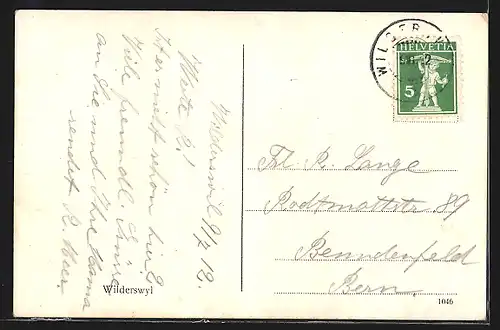 Wilderswil 9/2 12.
Werte L!
Ist ja meist schön hier.
Viele freundl. Grüsse
an Sie und Ihre Mama
sendet R. Meer
Wilderswyl
WILDER
HELVETIA
5
Frl. R. Lange
Rodtmattstr. 89
Breitenfeld
Bern.
1046